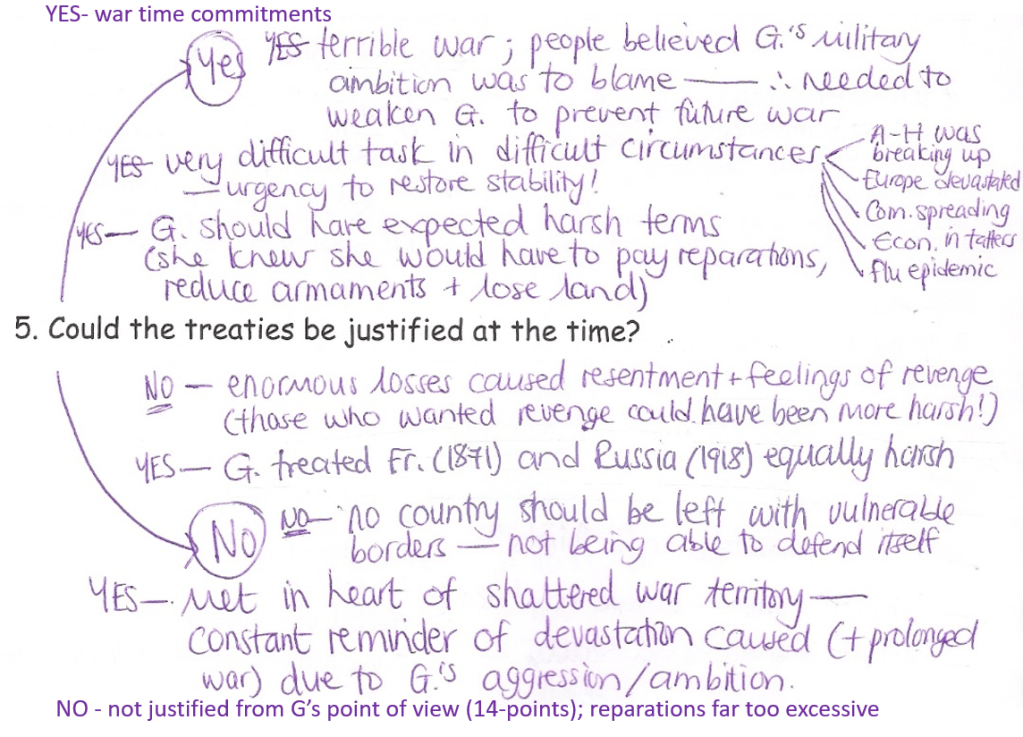 YES- war time commitments
Yes
YES terrible war; people believed G.'s military
ambition was to blame — ∴ needed to
weaken G. to prevent future war
YES very difficult task in difficult circumstances
— urgency to restore stability!
A-H was
breaking up
Europe devastated
Com. spreading
Econ. in tatters
flu epidemic
YES — G. should have expected harsh terms
(she knew she would have to pay reparations,
reduce armaments + lose land)
5. Could the treaties be justified at the time?
NO — enormous losses caused resentment + feelings of revenge
(those who wanted revenge could have been more harsh!)
YES — G. treated Fr. (1871) and Russia (1918) equally harsh
No
NO — no country should be left with vulnerable
borders — not being able to defend itself
YES — Met in heart of shattered war territory —
constant reminder of devastation caused (+ prolonged
war) due to G.'s aggression/ambition.
NO - not justified from G's point of view (14-points); reparations far too excessive